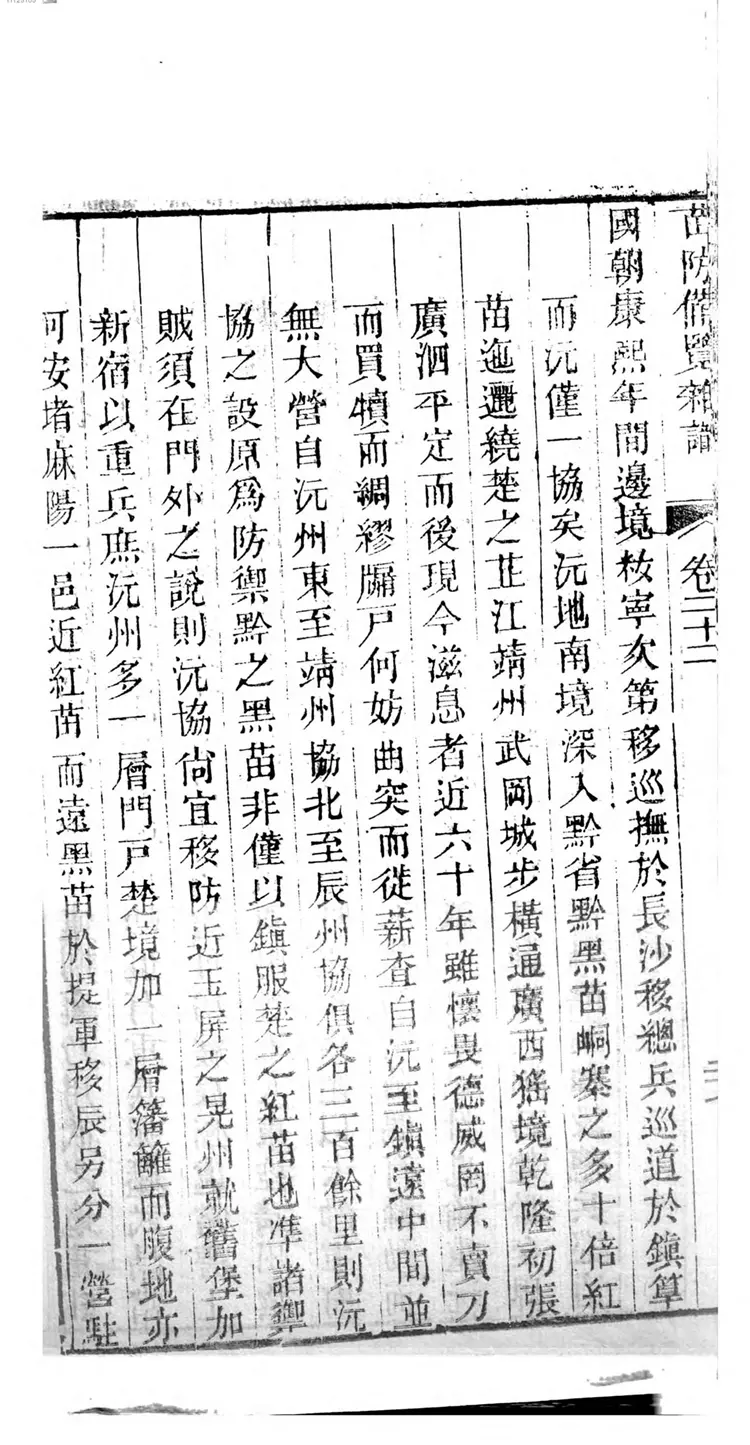 苗防備覽雜識 卷二十二
國朝康熙年間邊境敉寧次第移巡撫於長沙移總兵巡道於鎮筸
而沅僅一協矣沅地南境深入黔省黔黑苗峒寨之多十倍紅
苗迤邐繞楚之芷江靖州武岡城步橫通廣西猺境乾隆初張
廣泗平定而後現今滋息者近六十年雖懷畏德威罔不賣刀
而買犢而綢繆牖戸何妨曲突而徙薪查自沅至鎮遠中間並
無大營自沅州東至靖州協北至辰州協俱各三百餘里則沅
協之設原爲防禦黔之黑苗非僅以鎮服楚之紅苗也準諸禦
賊須在門外之說則沅協尙宜移防近玉屏之晃州就舊堡加
新宿以重兵庶沅州多一層門戸楚境加一層籓籬而腹地亦
可安堵麻陽一邑近紅苗而遠黑苗於提軍移辰另分一營駐